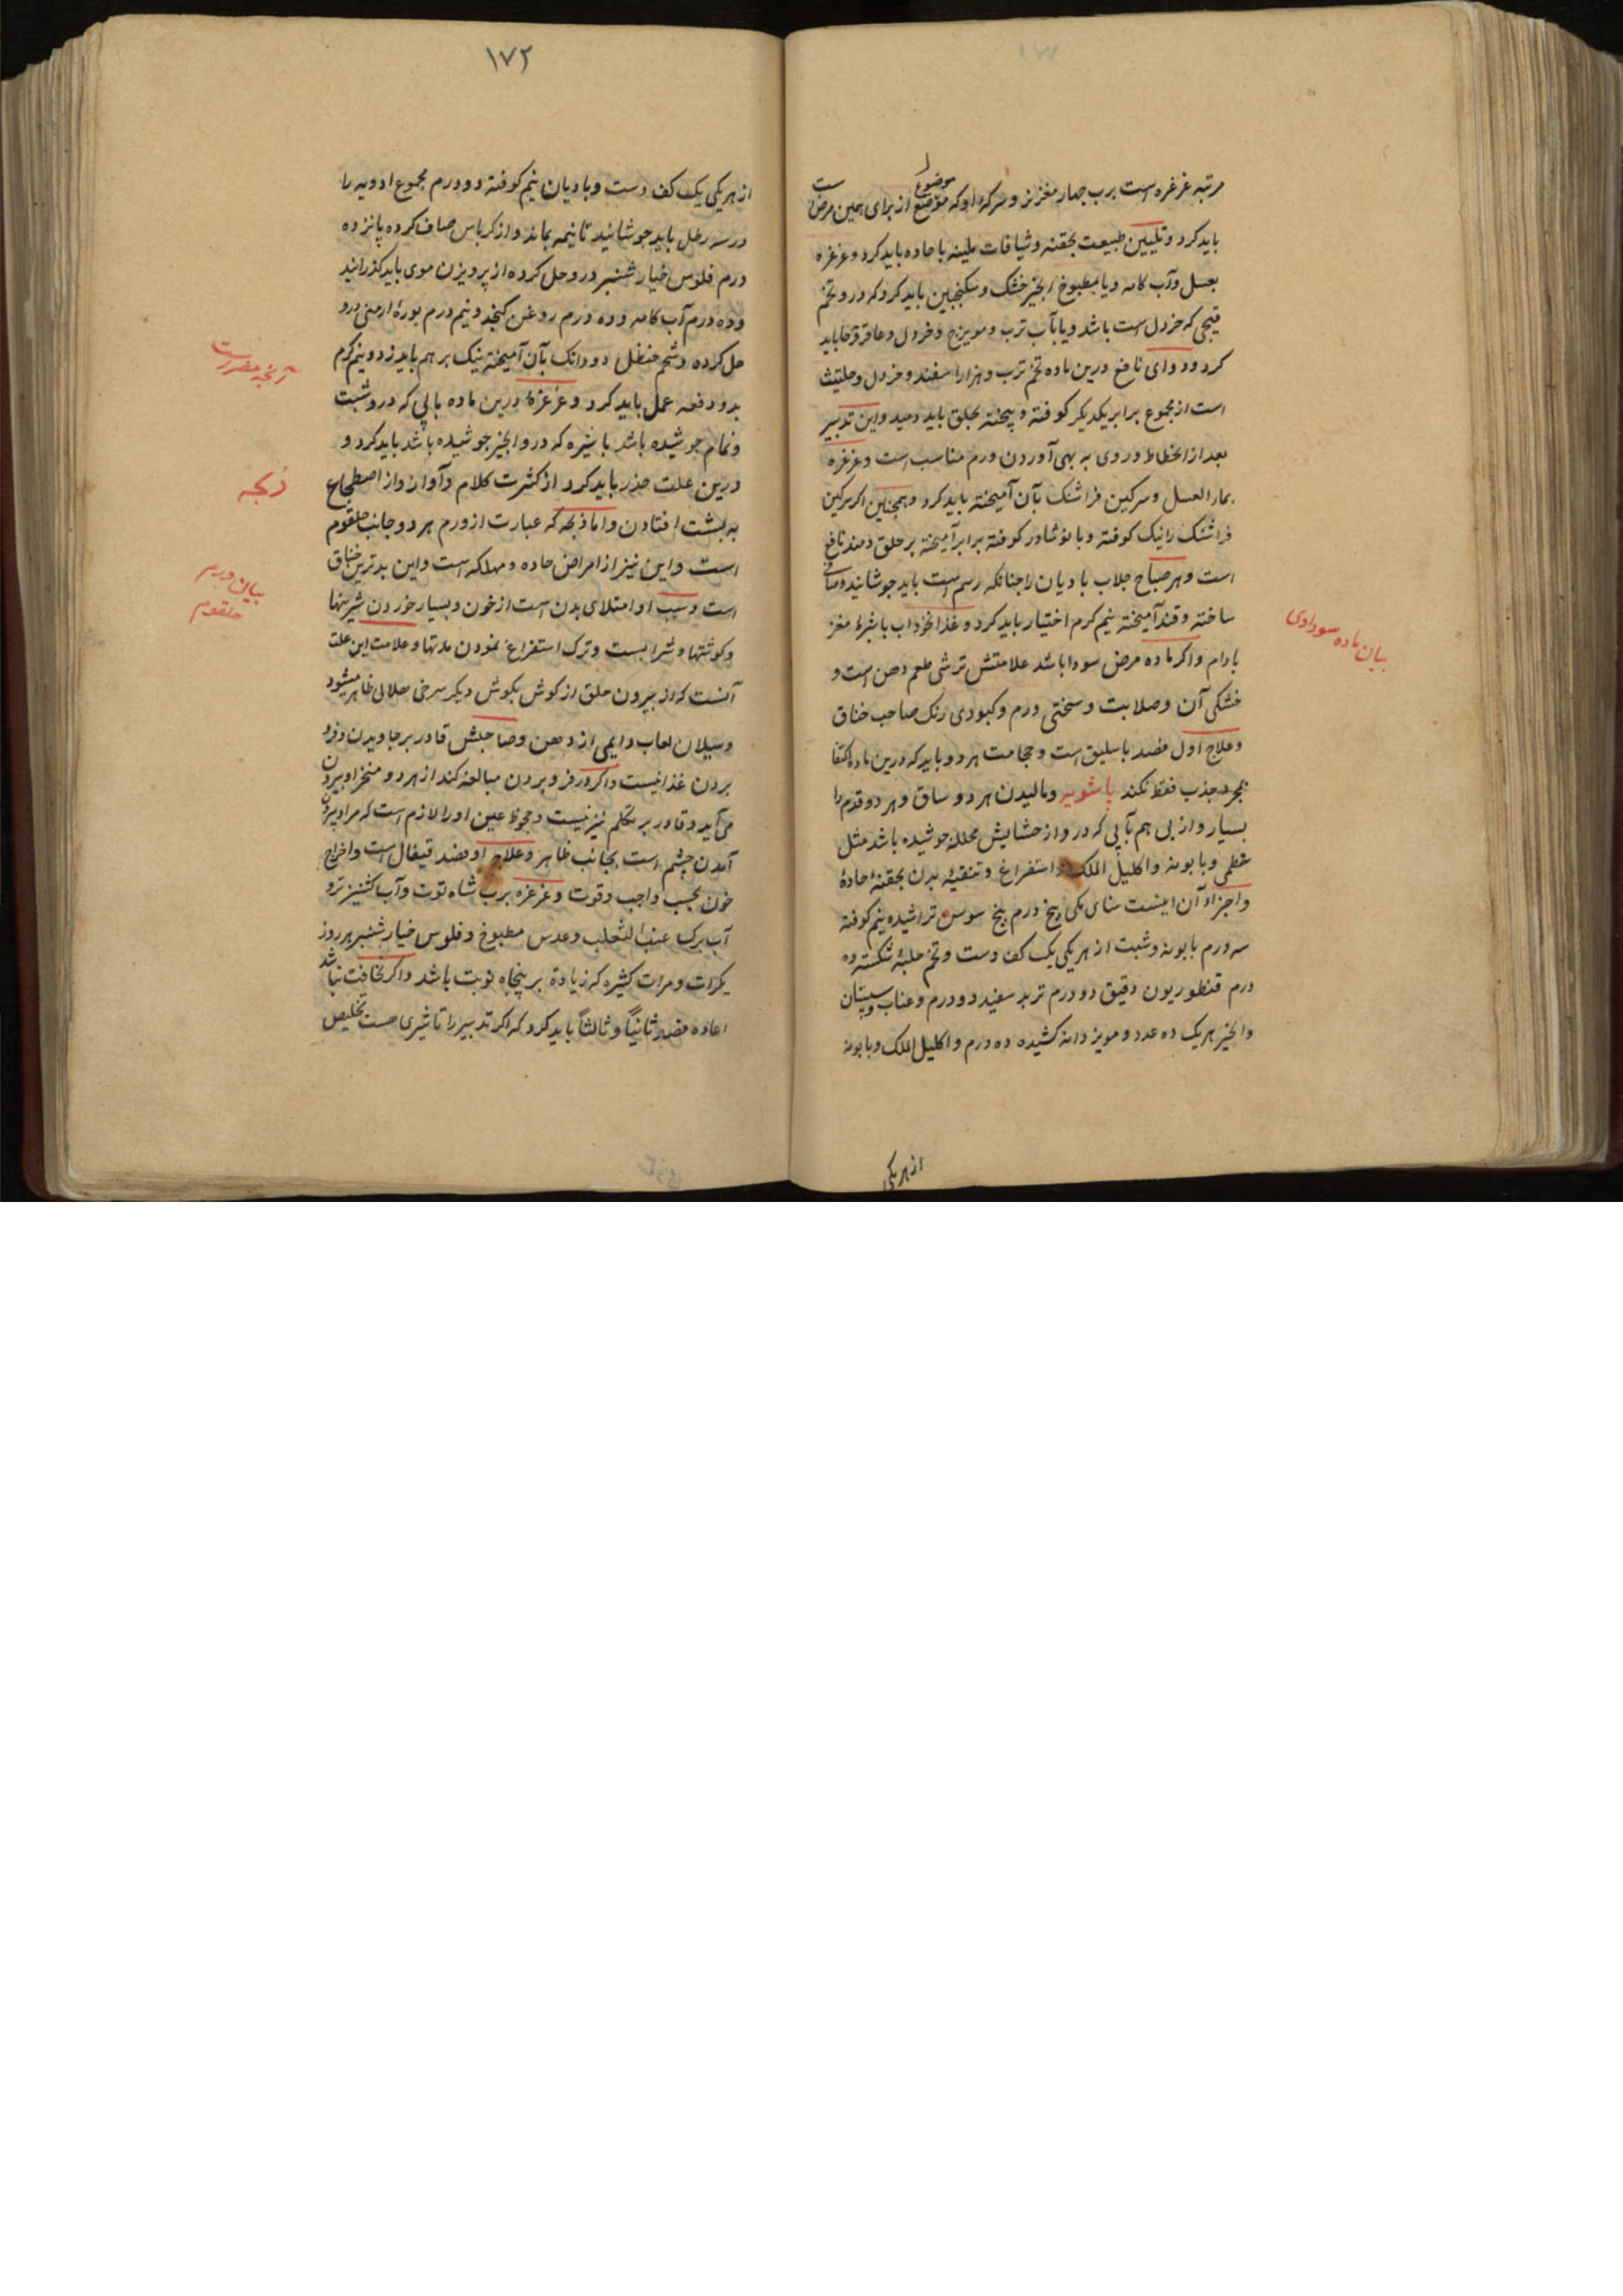 مرتبه غرغره است برب چهار مغز نر و سرکه او که موضوع از برای همین مرض است
باید کرد و تلیین طبیعت بحقنه و شیافات ملینه با حاده باید کرد و غرغره
بعسل و آب کامه و یا بمطبوخ انجیر خشک و سکنجبین باید کرد که درو تخم
که خردل است باشد و یا بآب ترب و مویزج و خردل و عاقرقرحا باید
کرد و دوای نافع درین ماده تخم ترب و هزار اسفند و خردل و حلتیت
است از مجموع برابر یکدیکر کوفته و بیخته بحلق باید دمید و این تدبیر
بعد از انحطاط و روی به بهی آوردن ورم مناسب است و غرغره
بماء العسل و سرکین فراشتک بآن آمیخته باید کرد و همچنین اکر سرکین
فراشتک را نیک کوفته و با نوشادر کوفته برابر آمیخته بر حلق دمند نافع
است و هر صباح جلاب بادیان را چنانکه رسم است باید جوشانید و صاف
ساخته و قند آمیخته نیم کرم اختیار باید کرد و غذا نخوداب با شیرهٔ مغز
بادام و اکر ماده مرض سودا باشد علامتش ترشی طعم دهن است و
خشکی آن و صلابت و سختی ورم و کبودی رنک صاحب خناق
و علاج اول فصد باسلیق است و حجامت هر دو و باید که درین ماده اکتفا
بمجرد جذب فقط نکند پاشویه و مالیدن هر دو ساق و هر دو قدم را
بسیار و از پی هم بآبی که درو از حشایش محلله جوشیده باشد مثل
خطمی و بابونه و اکلیل الملک و استفراغ و تنقیهٔ بدن بحقنهٔ حادهٔ
و اجزاء آن اینست سنای مکی پنج درم بیخ سوس تراشیده نیم کوفته
سه درم بابونه و شبت از هر یکی یک کف دست و تخم حلبهٔ شکسته ده
درم قنطوریون دقیق دو درم تربد سفید دو درم و عناب و سپستان
و انجیر هر یک ده عدد و مویز دانه کشیده ده درم و اکلیل الملک و بابونه
از هر یکی
بیان ماده سوداوی
۱۷۲
از هر یکی یک کف دست و بادیان نیم کوفته دو درم مجموع ادویه را
در سه رطل باید جوشانید تا نیمه بماند و از کرباس صاف کرده پانزده
درم فلوس خیار شنبر درو حل کرده از پرویزن موی باید کذرانید
و ده درم آب کامه و ده درم روغن کنجد و نیم درم بورهٔ ارمنی درو
حل کرده و شحم حنظل دو دانک بآن آمیخته نیک بر هم باید زد و نیم کرم
بدو دفعه عمل باید کرد و غرغرهٔ درین ماده بآبی که درو شبت
و نمام جوشیده باشد یا شیره که درو انجیر جوشیده باشد باید کرد و
درین علت حذر باید کرد از کثرت کلام و آواز و از اضطجاع
به پشت افتادن و اما ذبحه که عبارت از ورم هر دو جانب حلقوم
است و این نیز از امراض حاده و مهلکه است و این بدترین خناق
است و سبب او امتلای بدن است از خون و بسیار خوردن شیرینیها
و کوشتها و شرابست و ترک استفراغ نمودن مدتها و علامت این علت
آنست که از بیرون حلق از کوش بکوش دیکر سرخی هلالی ظاهر میشود
و سیلان لعاب دایمی از دهن و صاحبش قادر بر جاویدن و فرو
بردن غذا نیست و اکر در فرو بردن مبالغه کند از هر دو منخر او بیرون
می آید و قادر بر تکلم نیز نیست و جحوظ عین او را لازم است که مراد بیرون
آمدن چشم است بجانب ظاهر و علاج او فصد قیفال است و اخراج
خون بحسب واجب و قوت و غرغره برب شاه توت و آب کشنیز تر و
آب برک عنب الثعلب و عدس مطبوخ و فلوس خیار شنبر هر روز
بکرات و مرات کثیره که زیاده بر پنجاه نوبت باشد و اکر نحافت نباشد
اعاده فصد ثانیاً و ثالثاً باید کرد که اکر تدبیر را تاثیری هست تخلیص
آنچه مضر است
ذبحه
بیان ورم
حلقوم